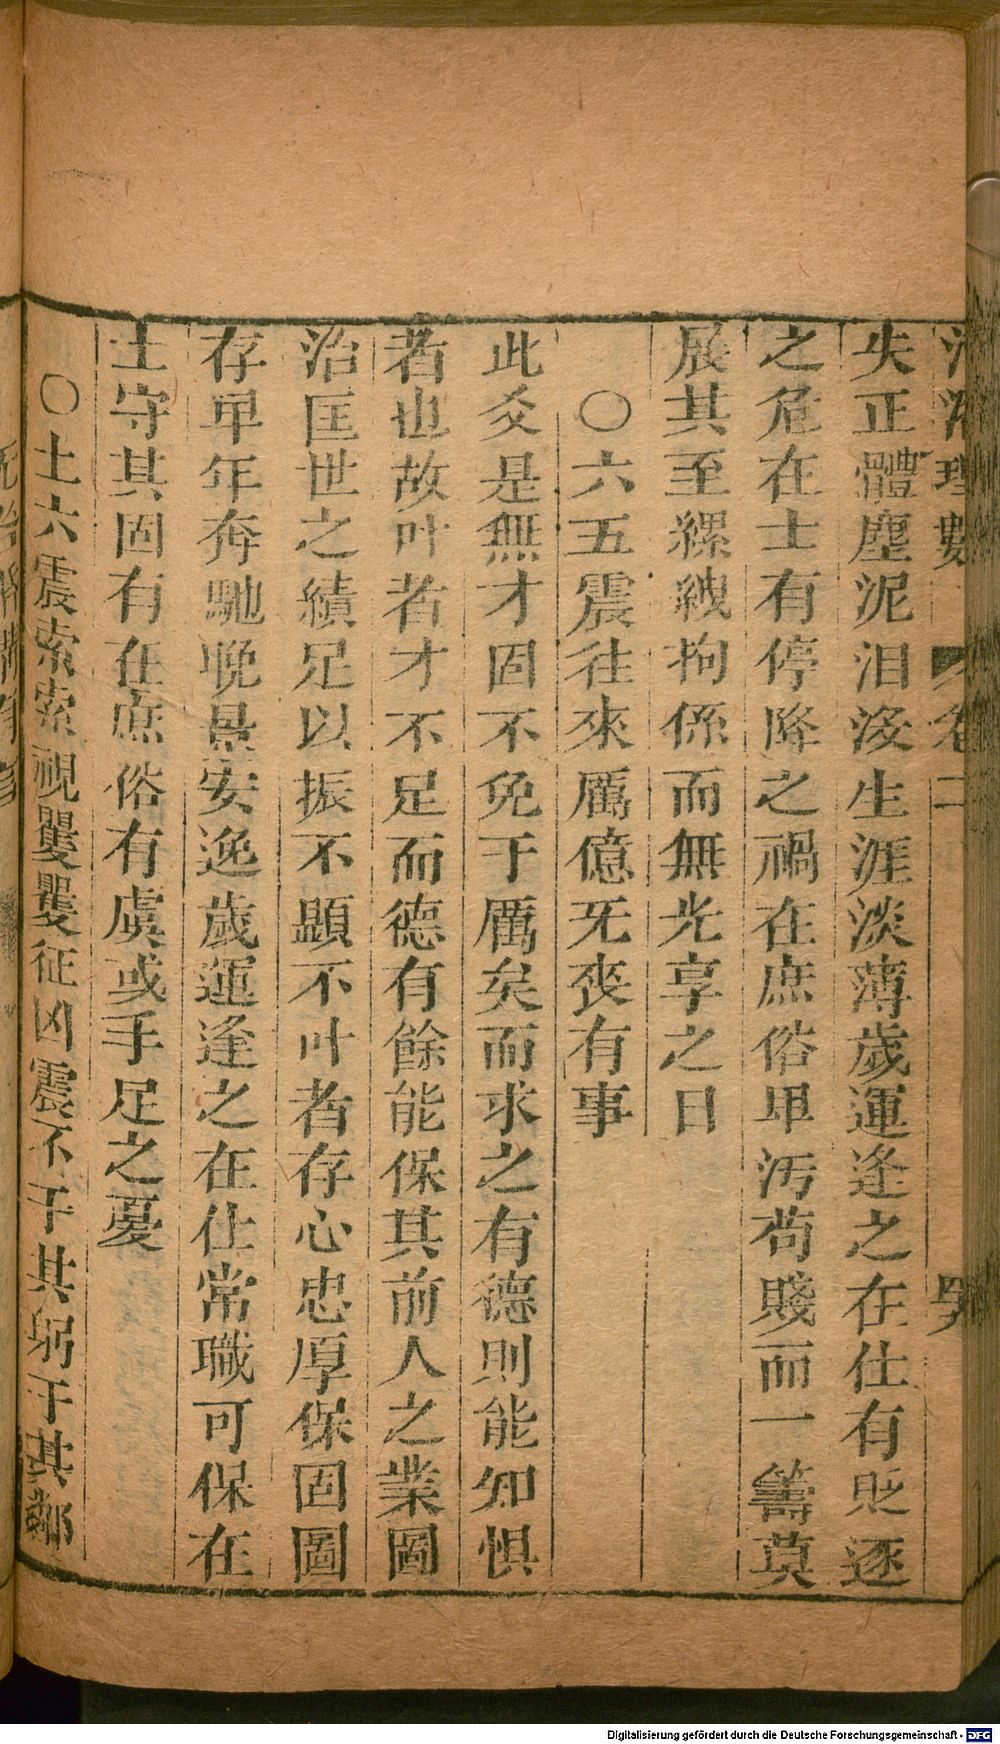 河洛理數 卷二
失正體塵泥汨沒生涯淡薄歲運逢之在仕有貶逐
之危在士有停降之禍在庶俗卑汚苟賤而一籌莫
展其至縲絏拘係而無光亨之日
〇六五震往來厲億旡喪有事
此爻是無才固不免于厲矣而求之有德則能知惧
者也故叶者才不足而德有餘能保其前人之業圖
治匡世之績足以振不顯不叶者存心忠厚保固圖
存早年奔馳晚景安逸歲運逢之在仕常職可保在
士守其固有在庶俗有虞或手足之憂
〇上六震索索視矍矍征凶震不于其躬于其鄰
Digitalisierung gefördert durch die Deutsche Forschungsgemeinschaft - DFG